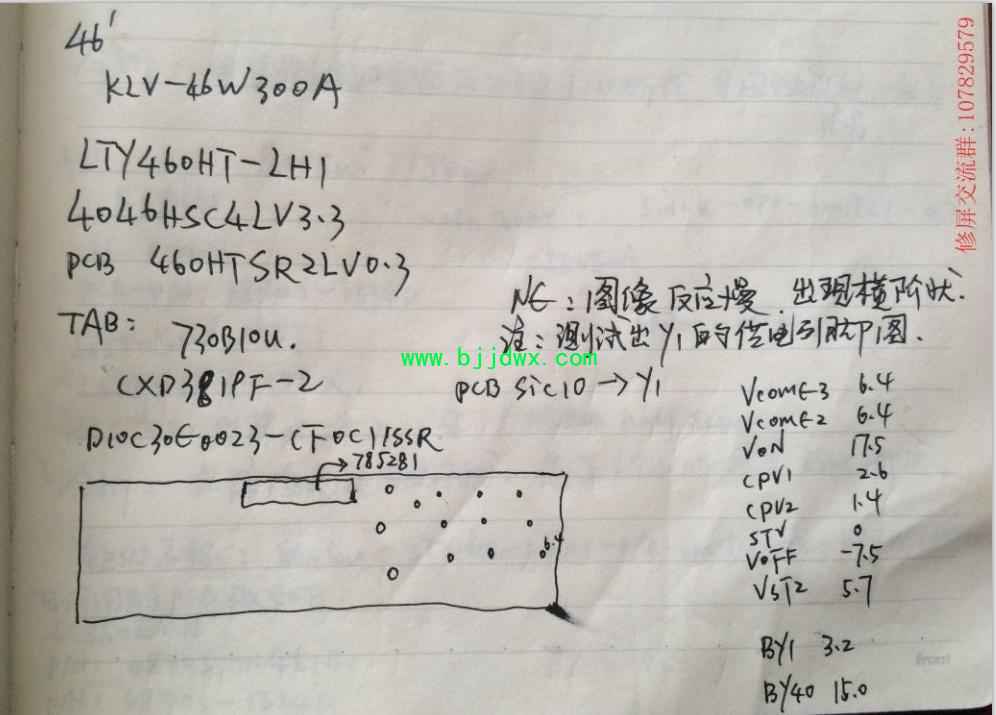 46'
KLV-46W300A
LTY460HT-LH1
4046HSC4LV3.3
PCB 460HTSR2LV0.3
TAB: 730B10U.
CXD3819PF-2
D10C30E0023-CF0C1155R
785281
NG: 图像反应慢. 出现横阶状.
注: 测试出Y1的供电引脚P1图.
PCB SIC10→Y1
VcomE3 6.4
VcomE2 6.4
VON 17.5
CPV1 2.6
CPV2 1.4
STV 0
VOFF -7.5
VST2 5.7
BY1 3.2
BY40 15.0
6.4
www.bjjdwx.com
修屏交流群:107829579